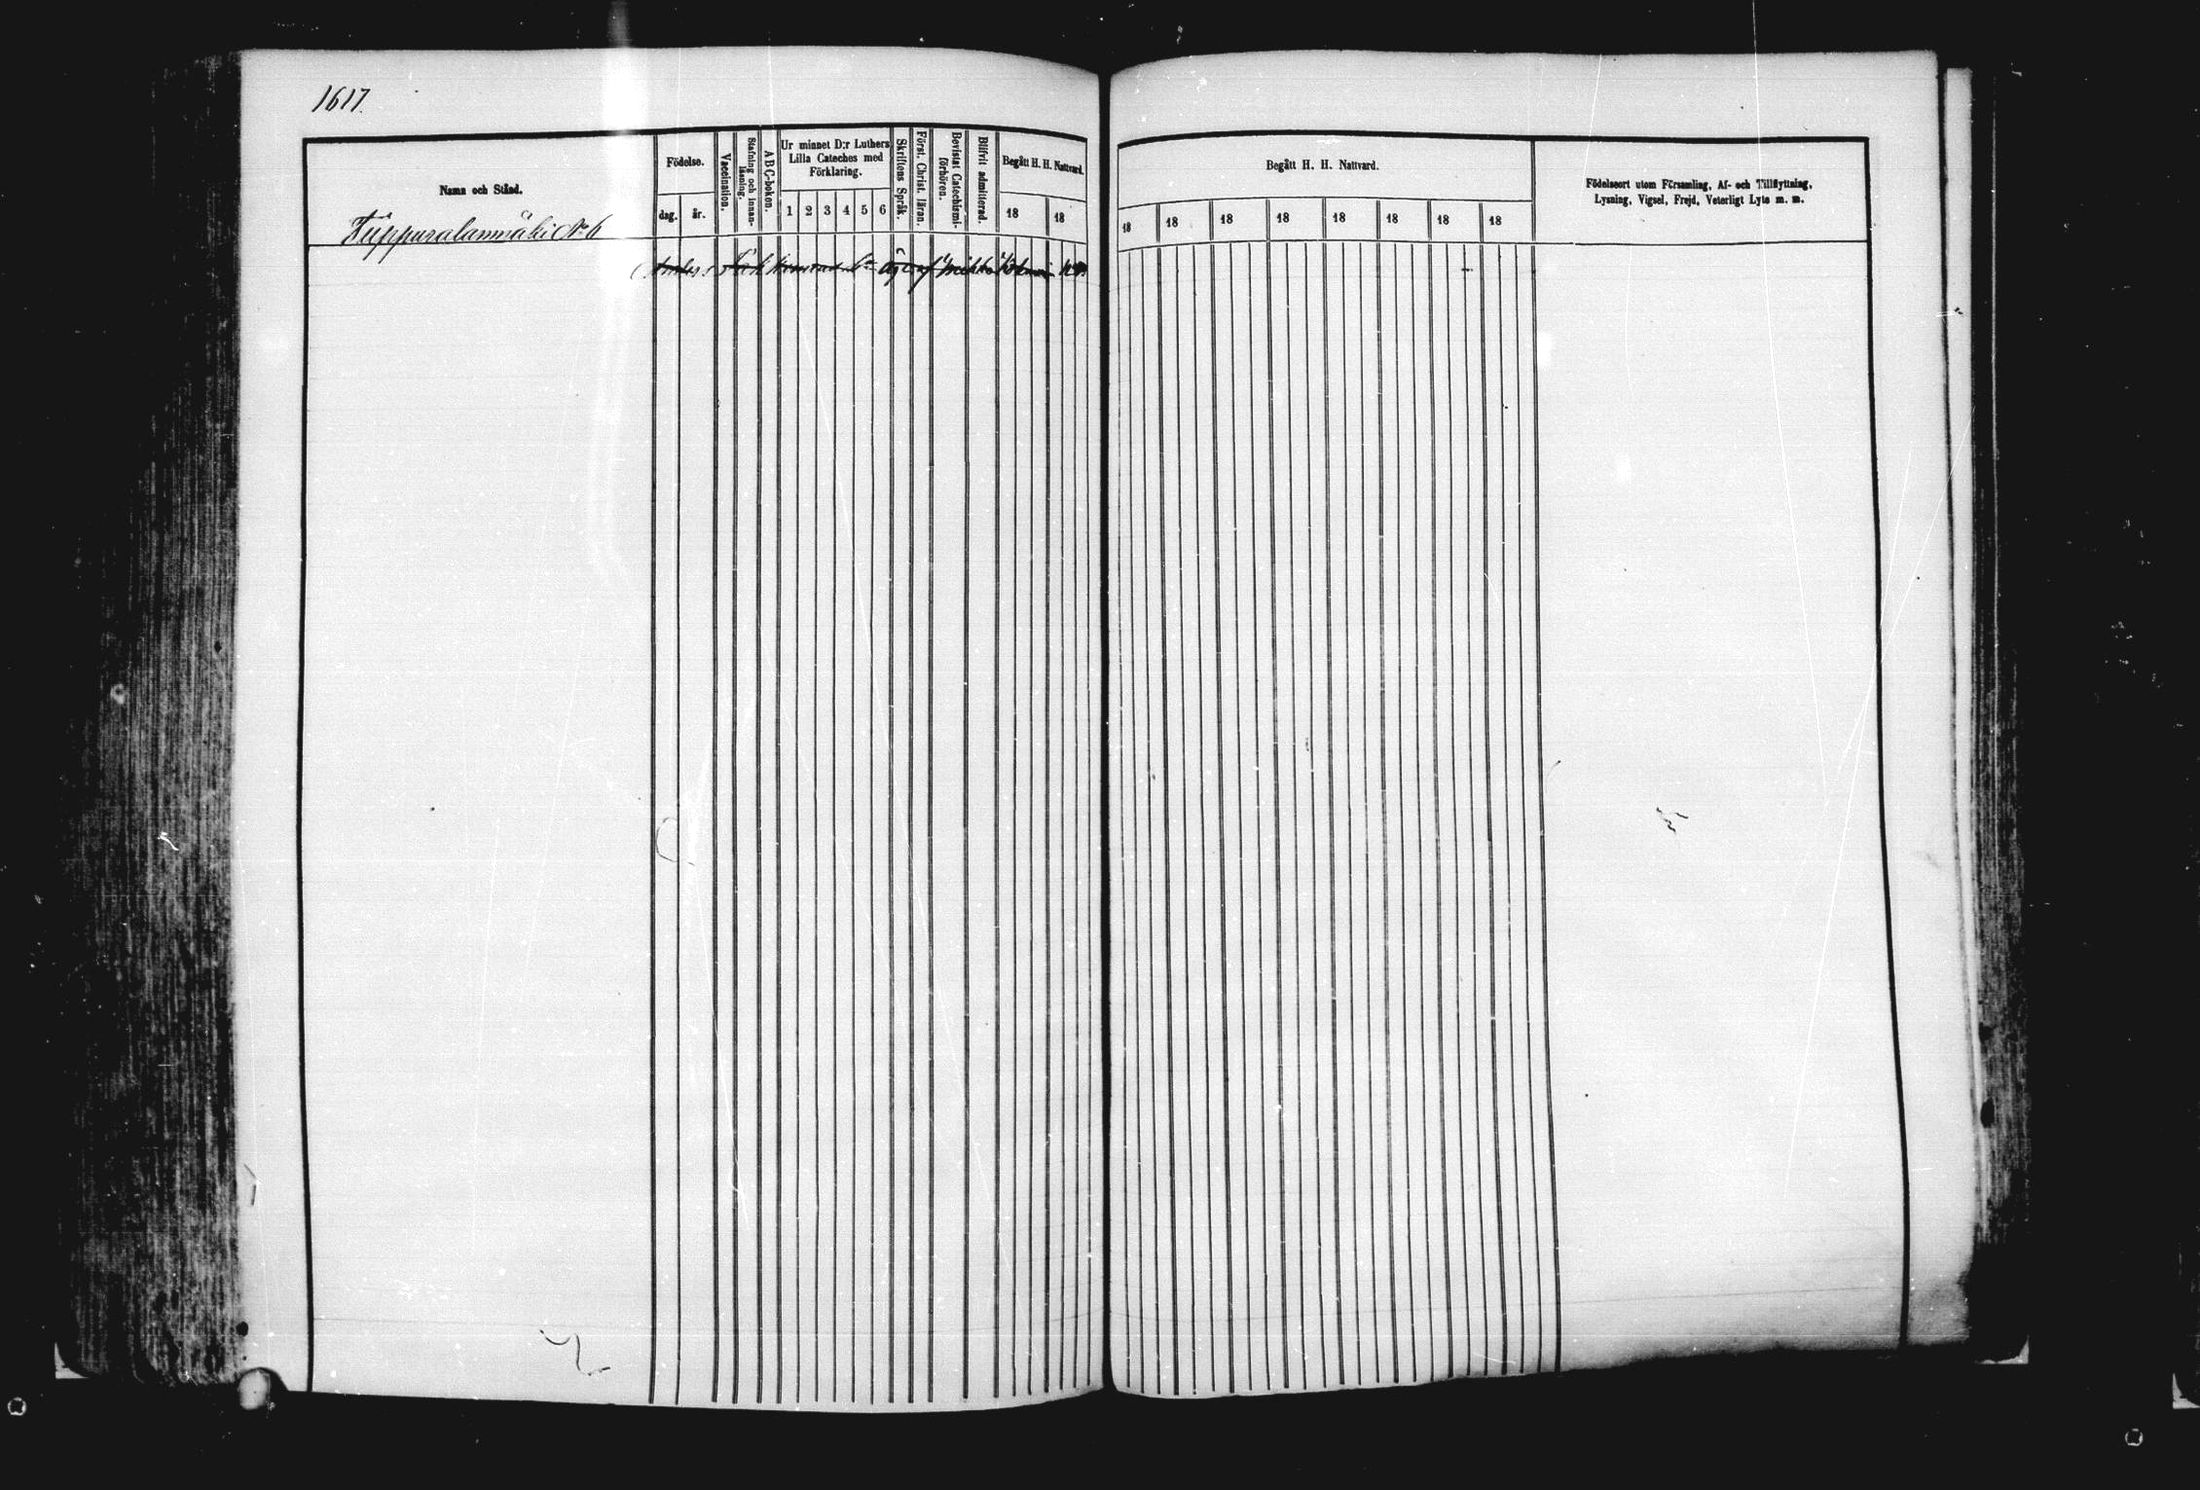 1617.
Namn och Stånd.
Födelse.
dag.
år.
Vaccination.
Stafning och innanläsning.
A B C-boken.
Ur minnet D:r Luthers
Lilla Cateches med
Förklaring.
1 2 3 4 5 6
Skriftens Språk.
Först. Christ. läran.
Bevistat Catechismi-
förhören.
Blifvit admitterad.
Begått H. H. Nattvard.
18 18
N:o 6
Begått H. H. Nattvard.
18 18 18 18 18 18 18 18
Födelseort utom Församling, Af- och Tillflyttning,
Lysning, Vigsel, Frejd, Veterligt Lyte m. m.